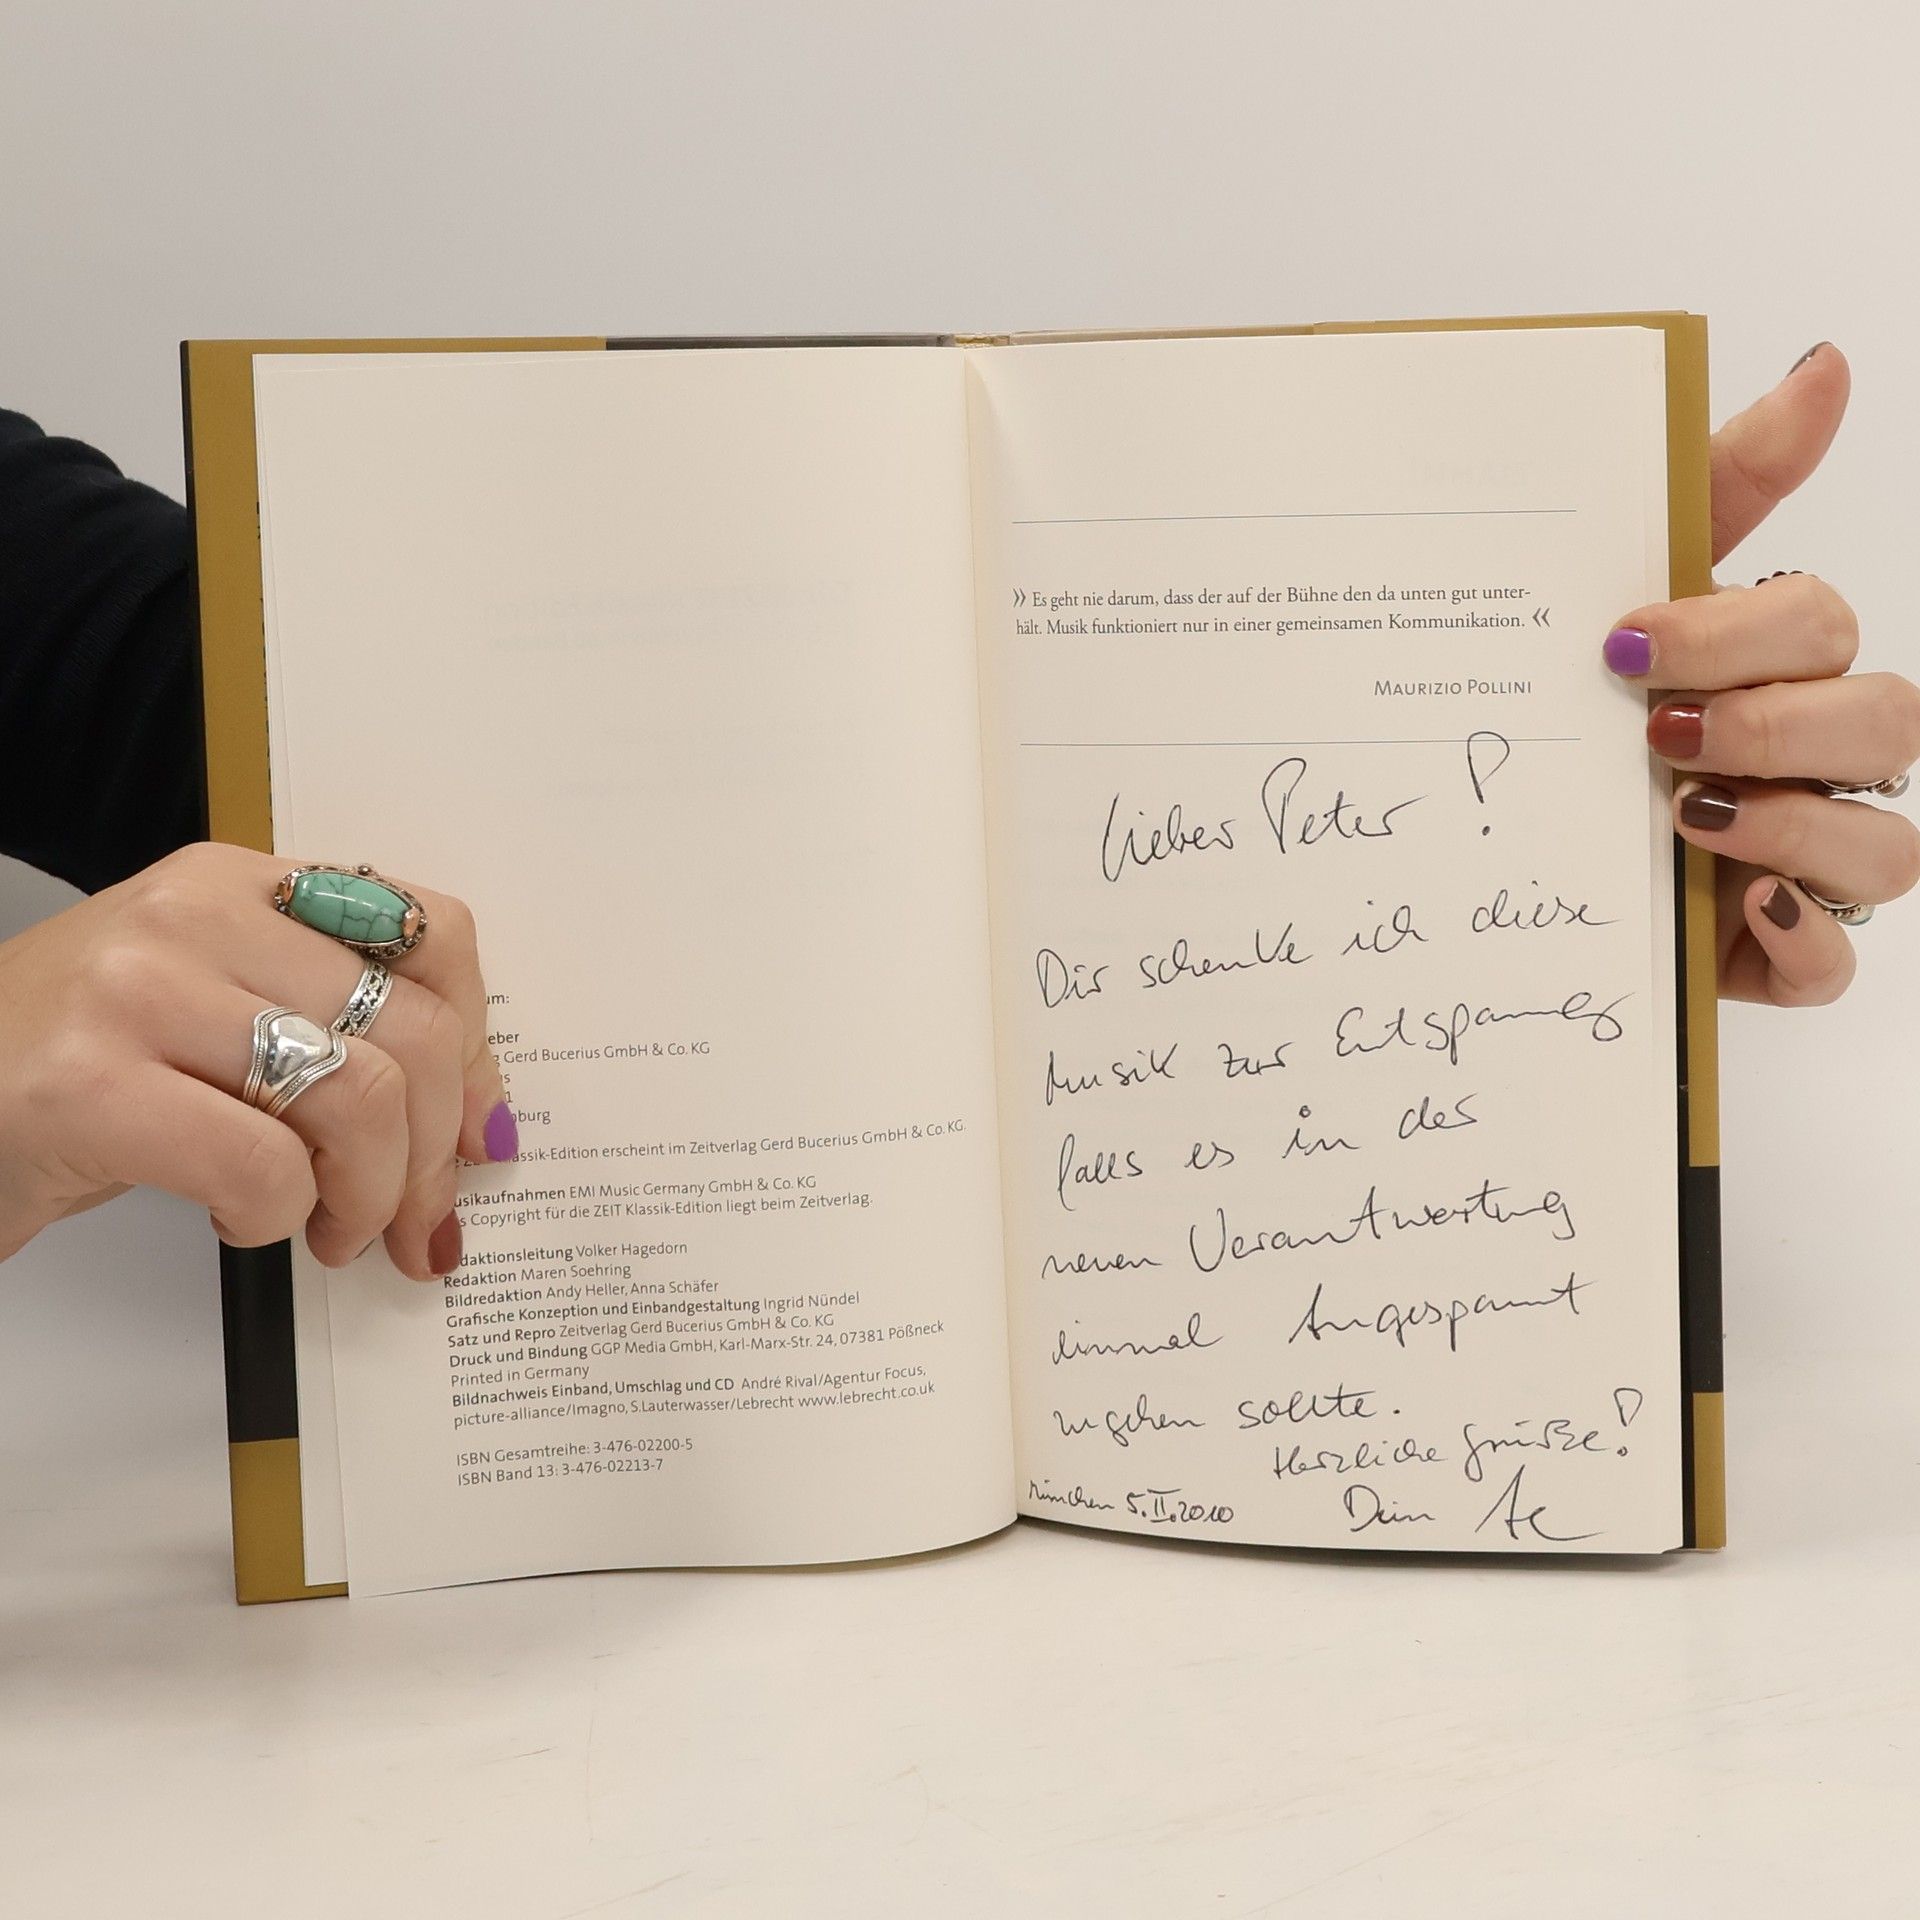 um:
eber
g Gerd Bucerius GmbH & Co. KG
us
1
burg
assik-Edition erscheint im Zeitverlag Gerd Bucerius GmbH & Co. KG.
usikaufnahmen EMI Music Germany GmbH & Co. KG
s Copyright für die ZEIT Klassik-Edition liegt beim Zeitverlag.
daktionsleitung Volker Hagedorn
Redaktion Maren Soehring
Bildredaktion Andy Heller, Anna Schäfer
Grafische Konzeption und Einbandgestaltung Ingrid Nündel
Satz und Repro Zeitverlag Gerd Bucerius GmbH & Co. KG
Druck und Bindung GGP Media GmbH, Karl-Marx-Str. 24, 07381 Pößneck
Printed in Germany
Bildnachweis Einband, Umschlag und CD André Rival/Agentur Focus,
picture-alliance/Imagno, S.Lauterwasser/Lebrecht www.lebrecht.co.uk
ISBN Gesamtreihe: 3-476-02200-5
ISBN Band 13: 3-476-02213-7
» Es geht nie darum, dass der auf der Bühne den da unten gut unter-
hält. Musik funktioniert nur in einer gemeinsamen Kommunikation. «
MAURIZIO POLLINI
Lieber Peter!
Dir schenke ich diese
Musik zur Entspannung
falls es in der
neuen Verantwortung
einmal Angespannt
zugehen sollte.
Herzliche Grüße!
München 5.II.2010
Dein